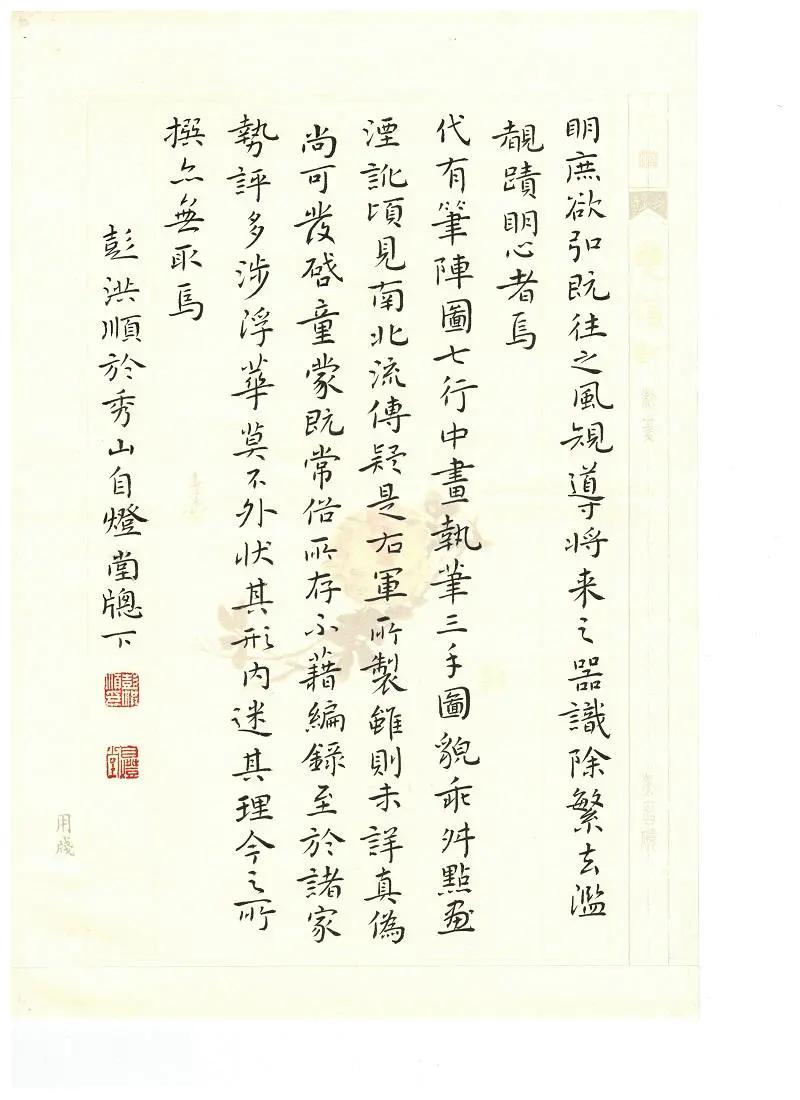 明庶欲弘既往之風規導将来之器識除繁去濫
覩蹟明心者焉
代有筆陣圖七行中畫執筆三手圖貌乖舛點畫
湮訛頃見南北流傳疑是右軍所製雖則未詳真偽
尚可發啓童蒙既常俗所存不藉編錄至於諸家
勢評多涉浮華莫不外狀其形內迷其理今之所
撰亦無取焉
彭洪順於秀山自燈堂牕下
用牋